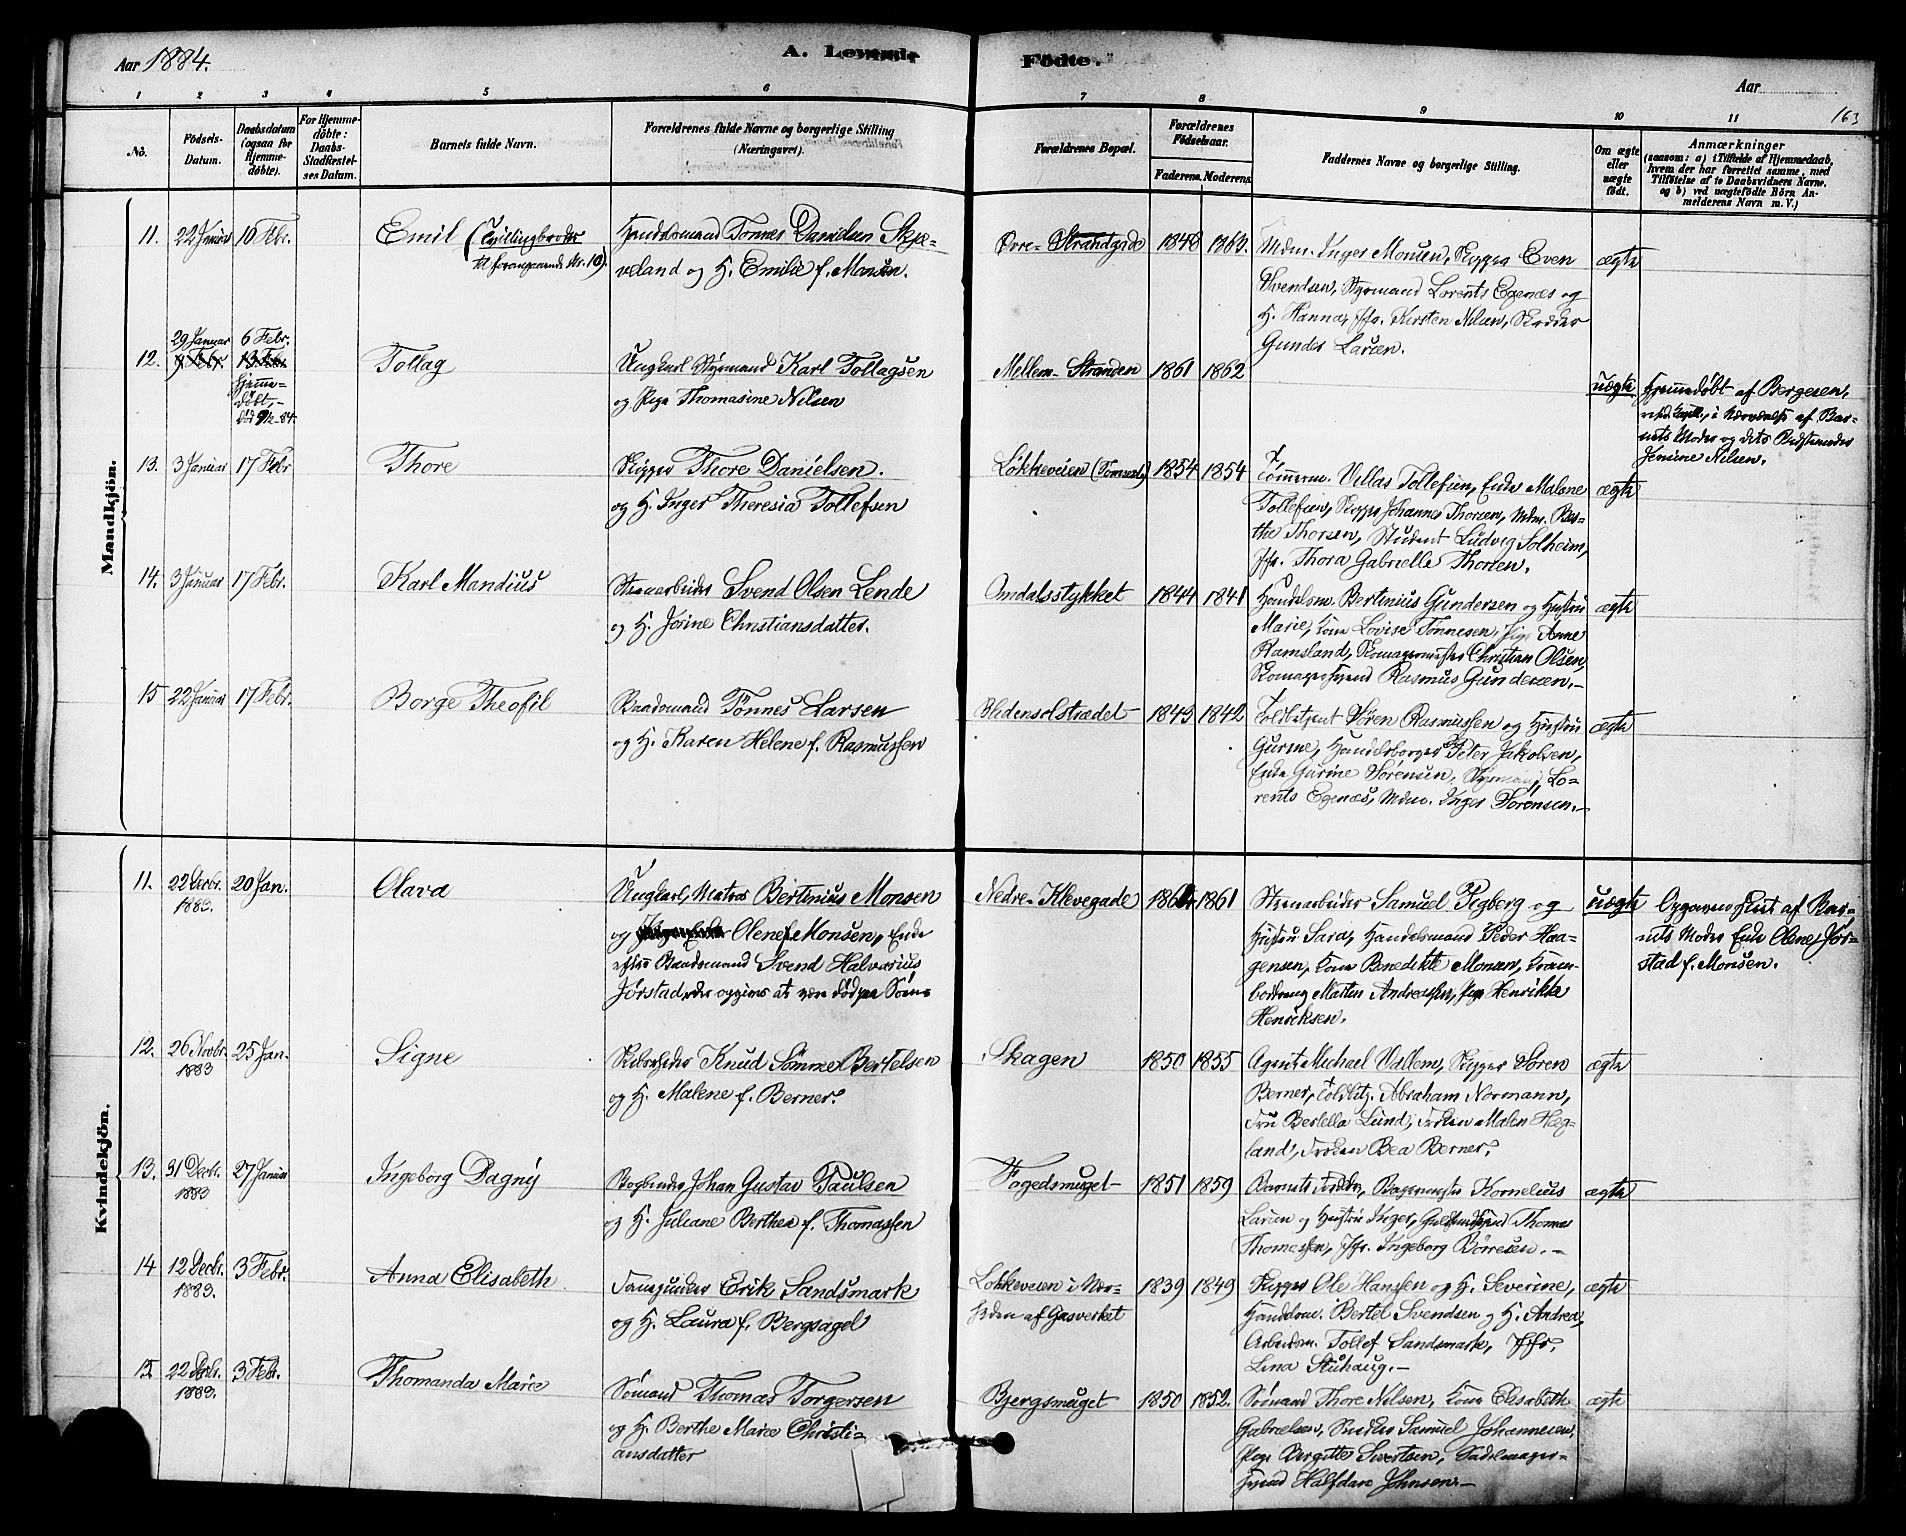 Aar 1884.
A. Levende
Födte.
Aar
163
1 2 3 4 5 6 7 8 9 10 11
No.
Födsels-
Datum.
Daabsdatum
(ogsaa for
Hjemme-
döbte).
For Hjemme-
döbte:
Daabs-
Stadfæstel-
ses Datum.
Barnets fulde Navn.
Forældrenes fulde Navne og borgerlige Stilling
(Næringsvei).
Forældrenes Bopæl.
Forældrenes
Födselsaar.
Faderens. Moderens.
Faddernes Navne og borgerlige Stilling.
Om ægte
eller
uægte
födt.
Anmærkninger
(saasom: a) i Tilfælde af Hjemmedaab,
hvem der har forrettet samme, med
Tilföielse af to Daabsvidners Navne.
og b) ved uægtefödte Börn An-
melderens Navn m. V.)
Mandkjön.
11. 22 Januar 10 Febr.
Emil (Tvillingbroder
til foregaaende Nr. 10).
Handelsmand Tönnes Danielsen Skje-
veland og H. Emilie f. Monsen.
Övre Strandgade 1848 1863.
Mdm. Inger Monsen, Skipper Even
Svendsen, Styrmand Lorents Egenæs og
H. Hanna, Jfr. Kirsten Nilsen, Skrædder
Gunder Larsen.
ægte
12. 29 Januar 6 Febr.
9 Febr. 13 Febr.
hjemme-
döbt,
död 9/2-84.
Tollag
Ungkarl Styrmand Karl Tollagsen
og Pige Thomasine Nilsen
Mellem-Stranden 1861 1862
uægte
Hjemmedöbt af Bergesen,
i Nærværelse af Bar-
nets Moder og dets Bedstemoder
Jensine Nilsen.
13. 3 Januar 17 Febr
Thore
Skipper Thore Danielsen.
og H. Inger Theresia Tollefsen
Lökkeveien 1854 1854
Tömmerm. Villas Tollefsen, Enke Malene
Tollefsen, Skipper Johannes Thorsen, Mdm. Ber-
the Thorsen, Student Ludvig Solheim,
Jfr. Thora Gabrielle Thorsen.
ægte
14. 3 Januar 17 Febr.
Karl Mandius
Stenarbeider Svend Olsen Lende
og H. Jorine Christiansdatter.
Omdalsstykket 1844 1841
Handelsm. Bertinius Gundersen og Hustru
Marie, Kone Lovise Tönnesen, Pige Anne
Ramsland, Skomagermester Christian Olsen,
Skomagersvend Rasmus Gundersen.
ægte
15 22 Januar 17 Febr.
Borge Theofil
Baadsmand Tönnes Larsen
og H. Karen Helene f. Rasmussen
Blidensolstrædet 1843 1842
Toldbetjent Sören Rasmussen og Hustru
Gurine, Handelsborger Peter Jakobsen,
Enke Gurine Sörensen, Styrmand Lo-
rents Egenæs, Mdm. Inger Sörensen.
ægte
Kvindekjön.
11. 22 Decbr. 20 Jan.
1883.
Olava
Ungkarl, Matros Bertinius Monsen
og Olene f. Monsen, Enke
efter Baadsmand Svend Halvarius
Jörstad, der opgives at være död paa Söen
Nedre-Klevegade 1861
Stenarbeider Samuel Pigberg og
Hustru Sara, Handelsmand Peder Haa-
gensen, Kone Benedikte Monsen, Kram-
boddreng Martin Andreassen, Pige Henrikke
Henriksen.
uægte
Opgaven skeet af Bar-
nets Moder Enke Olene Jör-
stad f. Monsen.
12. 26 Novbr. 25 Jan.
1883
Signe
Skibsreder Knud Sömme Bertelsen
og H. Malene f. Berner.
Skagen 1850 1855
Agent Michael Vallem, Skipper Sören
Berner, Toldbtj. Abraham Normann,
Fru Bertella Lund, Fröken Malen Hæg-
land, Fröken Bea Berner.
ægte
13. 31 Decbr. 27 Januar
1883
Ingeborg Dagny
Bogbinder Johan Gustav Paulsen
og H. Juliane Berthea f. Thomassen
Fogedsmuget 1851 1859
Barnets Forældre, Bagermester Kornelius
Larsen og Hustru Inger, Guldsmedsvend Thomas
Thomassen, Jfr. Ingeborg Börresen.
ægte
14 12 Decbr. 3 Febr.
1883.
Anna Elisabeth
Erik Sandsmark
og H. Laura f. Bergsagel
Lökkeveien i Nær-
heden af Gasverket 1839 1849
Skipper Ole Hansen og H. Severine,
Handelsm. Bertel Svendsen og H. Andrea,
Arbeidsm. Tollef Sandsmark, Jfr.
Lina Stuhaug.
ægte
15. 22 Decbr. 3 Febr.
1883.
Thomanda Marie
Sömand Thomas Torgersen
og H. Berthe Marie Christi-
ansdatter
Bjergsmuget 1850 1852.
Sömand Thore Nilsen, Kone Elisabeth
Gabrielsen, Snedker Samuel Johannesen,
Pige Birgitte Sivertsen, Sadelmager-
svend Halfdan Johnsen.
ægte